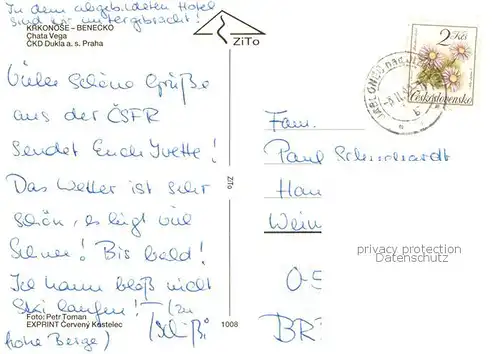 In dem abgebildeten Hotel
sind wir untergebracht!
KRKONOŠE – BENECKO
Chata Vega
ČKD Dukla a. s. Praha
ZiTo
Viele schöne Grüße
aus der ČSFR
sendet Euch Yvette!
Das Wetter ist sehr
schön, es liegt viel
Schnee! Bis bald!
Ich kann bloß nicht
Ski laufen! (zu
hohe Berge)
Foto: Petr Toman
EXPRINT Červený Kostelec
ZiTo
1008
2 Kčs
Československo
JABLONEC nad
Fam.
Paul
Wein
privacy protection
Datenschutz
O-5
BR